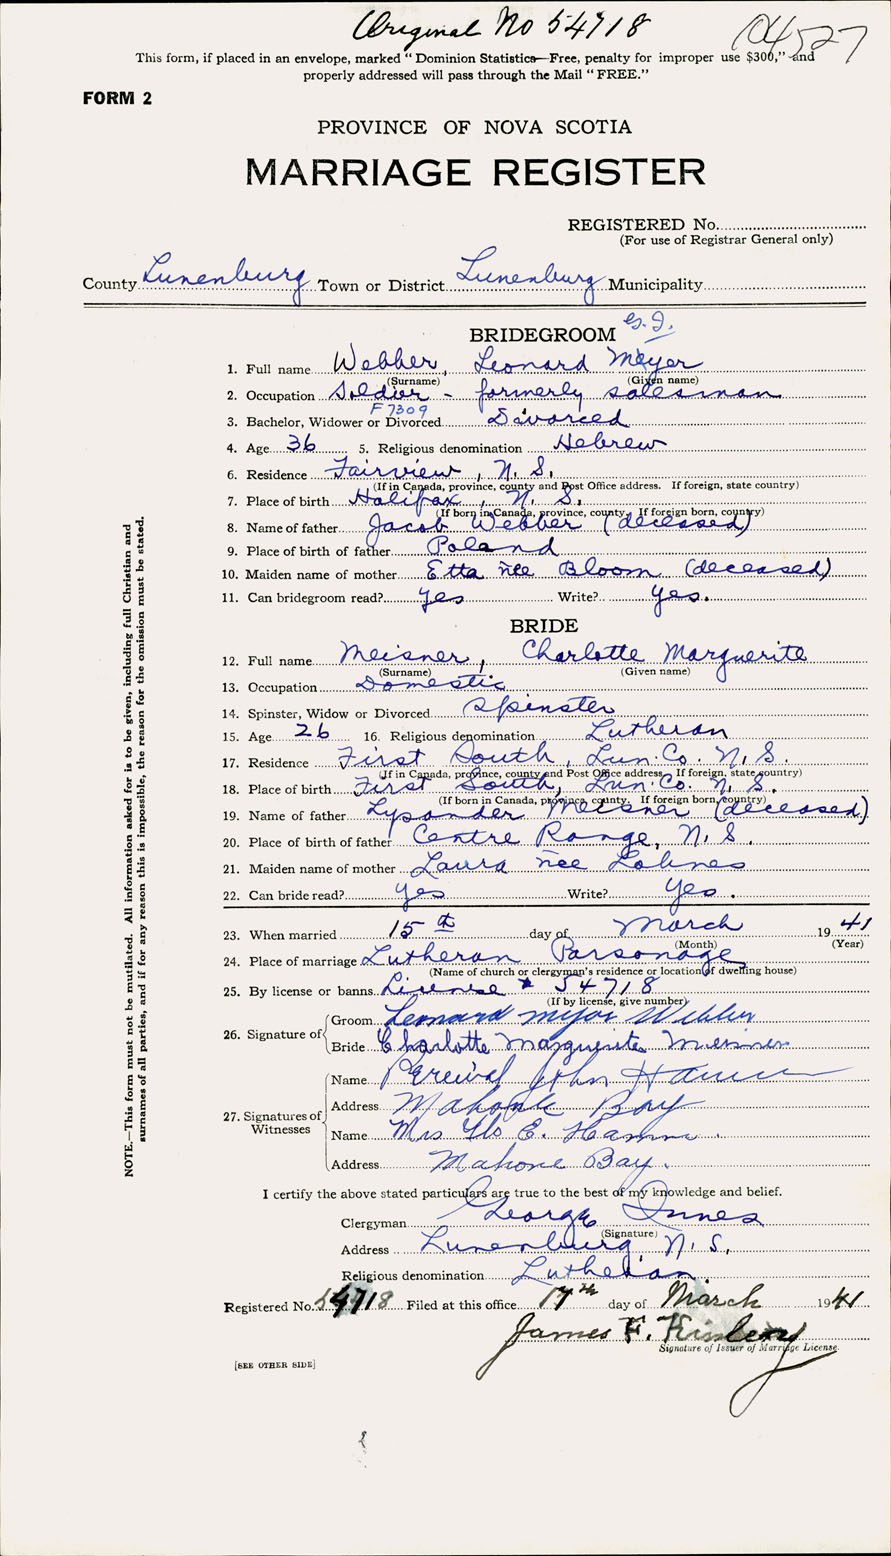 Original No 54718
04527
This form, if placed in an envelope, marked "Dominion Statistics—Free, penalty for improper use $300," and
properly addressed will pass through the Mail "FREE."
FORM 2
PROVINCE OF NOVA SCOTIA
MARRIAGE REGISTER
REGISTERED No.
(For use of Registrar General only)
County Lunenburg Town or District Lunenburg Municipality
BRIDEGROOM
1. Full name Webber, Leonard Meyer
(Surname) (Given name)
2. Occupation Soldier - formerly salesman
F 7309
3. Bachelor, Widower or Divorced Divorced
4. Age 36 5. Religious denomination Hebrew
6. Residence Fairview, N. S.
(If in Canada, province, county and Post Office address. If foreign, state country)
7. Place of birth Halifax, N. S.
(If born in Canada, province, county. If foreign born, country)
8. Name of father Jacob Webber (deceased)
9. Place of birth of father Poland
10. Maiden name of mother Etta nee Bloom (deceased)
11. Can bridegroom read? yes Write? yes.
BRIDE
12. Full name Meisner, Charlotte Marguerite
(Surname) (Given name)
13. Occupation Domestic
14. Spinster, Widow or Divorced Spinster
15. Age 26 16. Religious denomination Lutheran
17. Residence First South, Lun. Co. N. S.
(If in Canada, province, county and Post Office address. If foreign, state country)
18. Place of birth First South, Lun. Co. N. S.
(If born in Canada, province, county. If foreign born, country)
19. Name of father Lysander Meisner (deceased)
20. Place of birth of father Centre Range, N. S.
21. Maiden name of mother Laura nee Lohnes
22. Can bride read? yes Write? yes.
23. When married 15th day of March 1941
(Month) (Year)
24. Place of marriage Lutheran Parsonage
(Name of church or clergyman's residence or location of dwelling house)
25. By license or banns License # 54718
(If by license, give number)
26. Signature of Groom Leonard Myer Webber
Bride Charlotte Marguerite Meisner
27. Signatures of Witnesses Name Percival John Hamm
Address Mahone Bay
Name Mrs Flo E. Hamm.
Address Mahone Bay.
I certify the above stated particulars are true to the best of my knowledge and belief.
Clergyman George Innes
(Signature)
Address Lunenburg, N. S.
Religious denomination Lutheran
Registered No. 54718 Filed at this office 17th day of March 1941
James F. Kinley
Signature of Issuer of Marriage License.
[SEE OTHER SIDE]
NOTE.—This form must not be mutilated. All information asked for is to be given, including full Christian and
surnames of all parties, and if for any reason this is impossible, the reason for the omission must be stated.